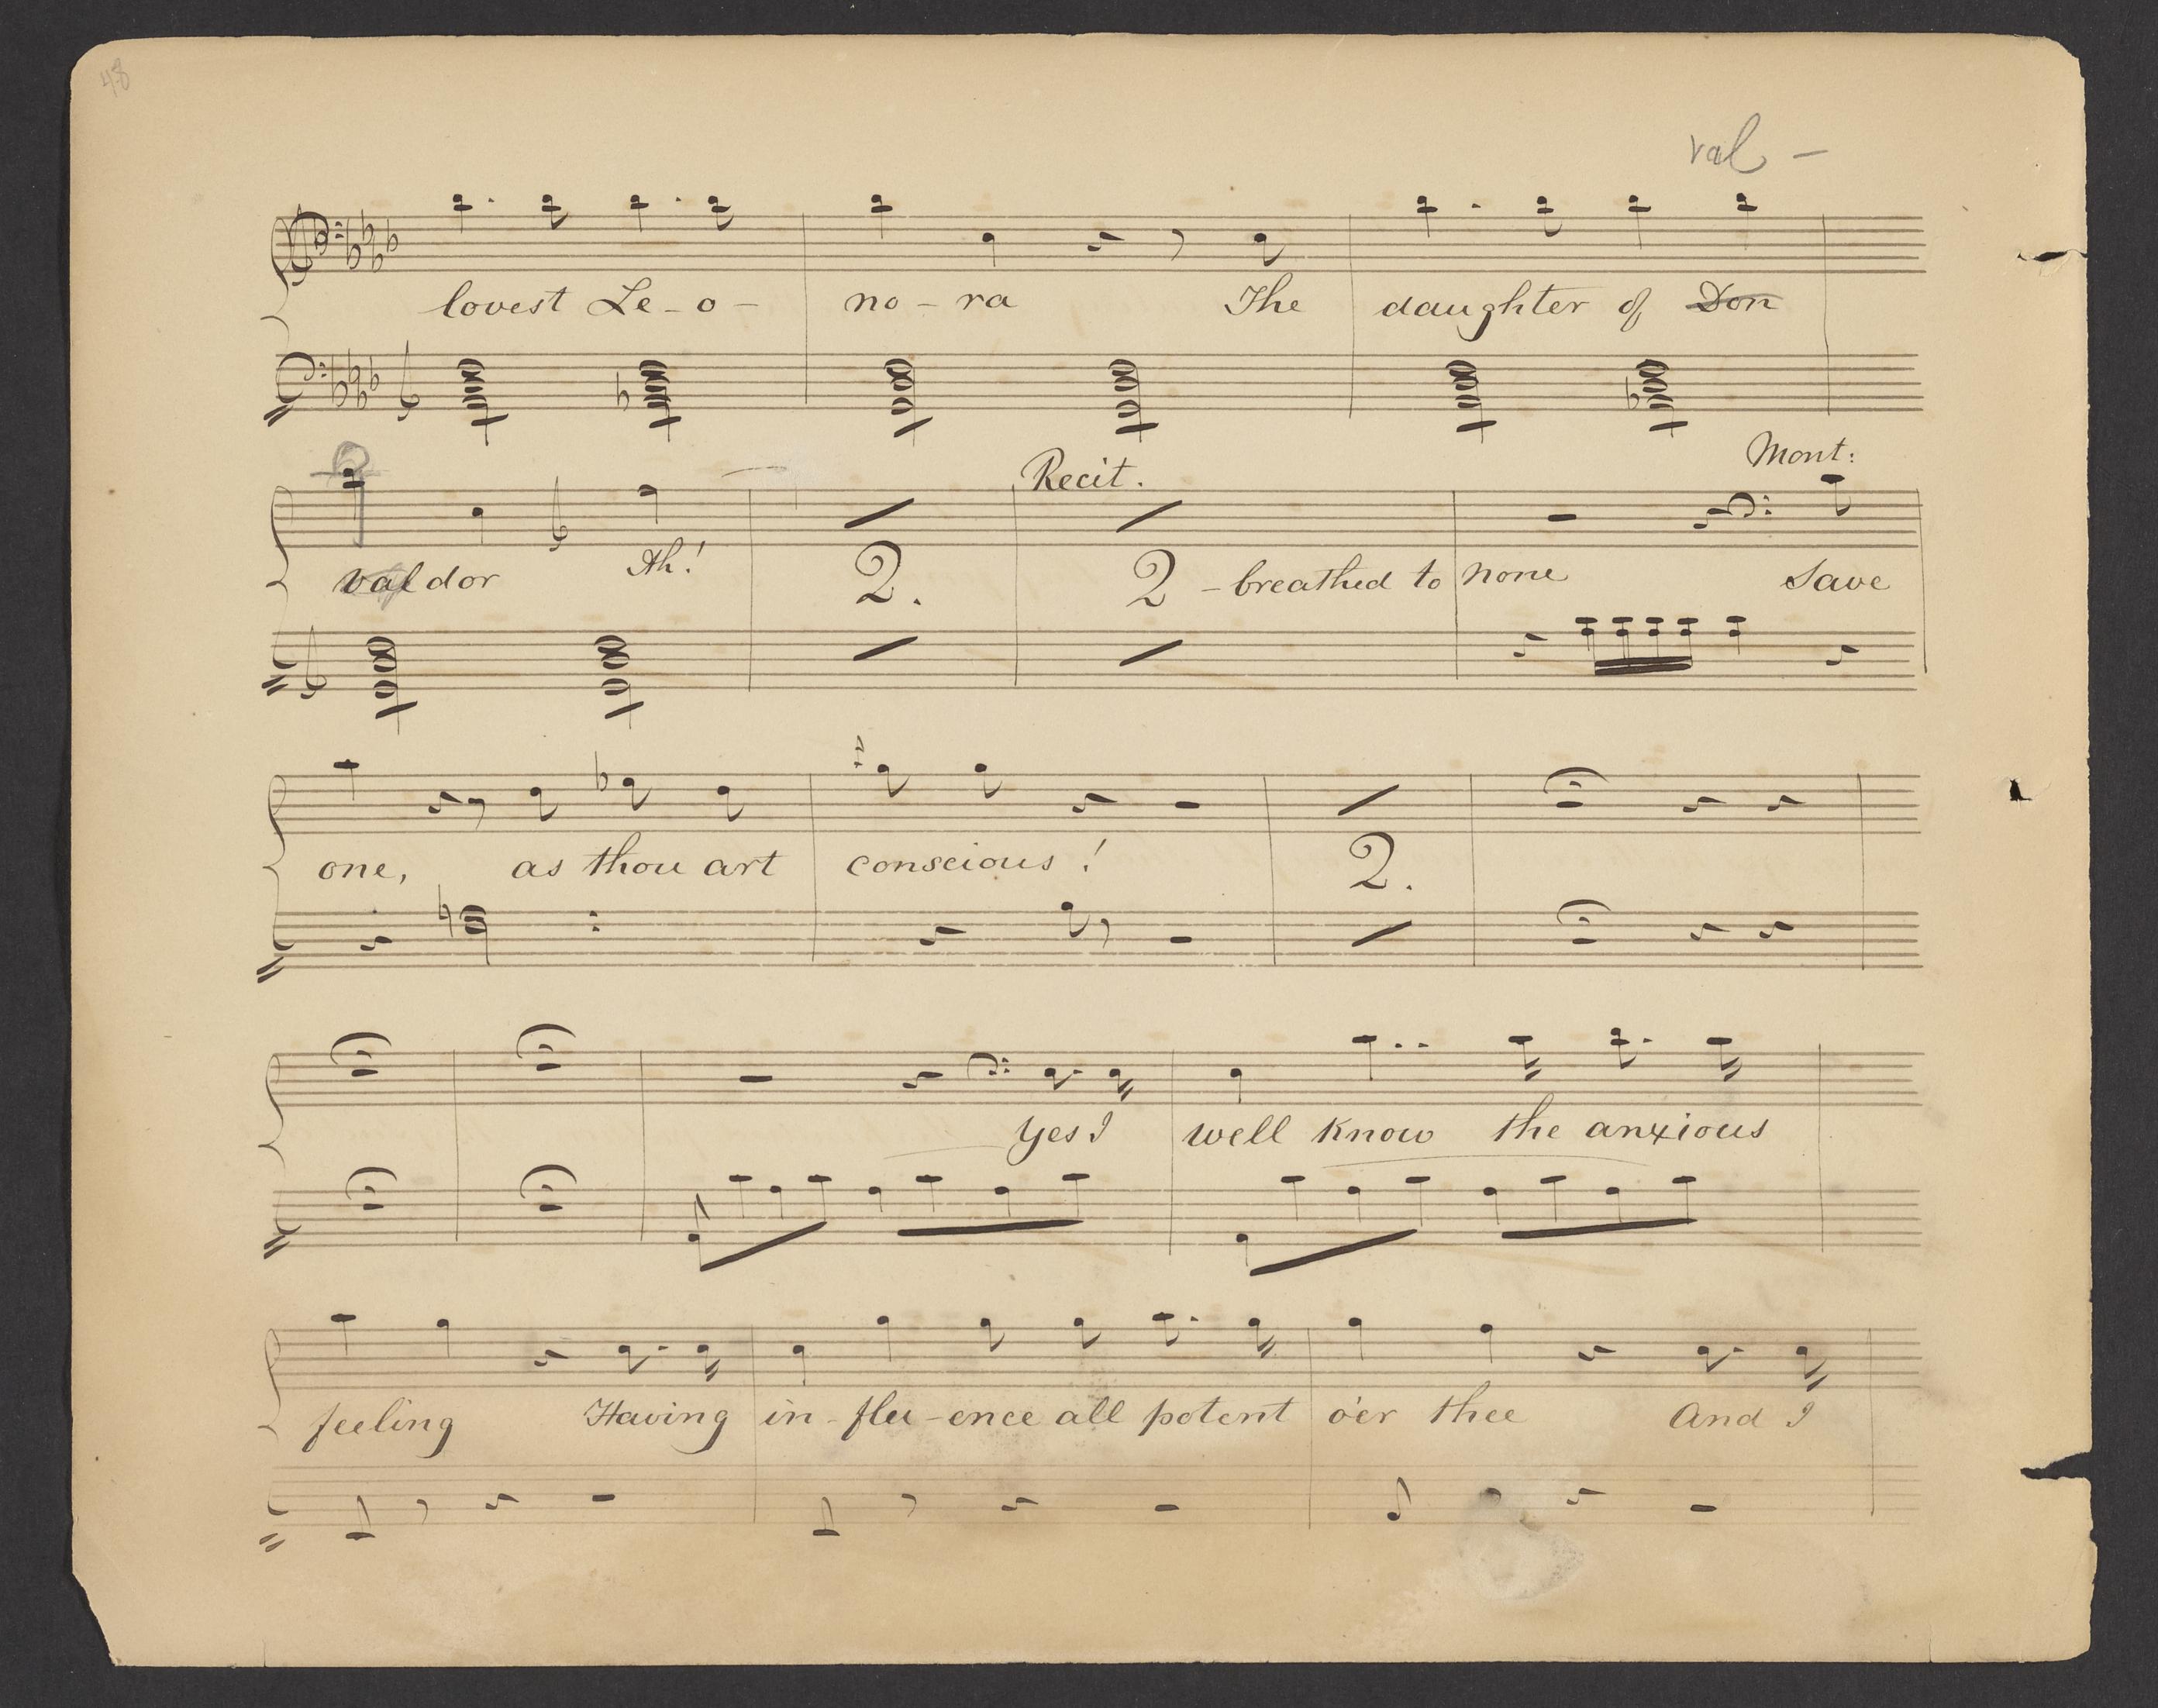 48
val —
lovest Le - o - no - ra The daughter of Don
Mont:
Recit.
valdor Ah! 2. 2 - breathed to none Save
one, as thou art conscious! 2.
Yes I well know the anxious
feeling Having in - flu - ence all potent o'er thee And I